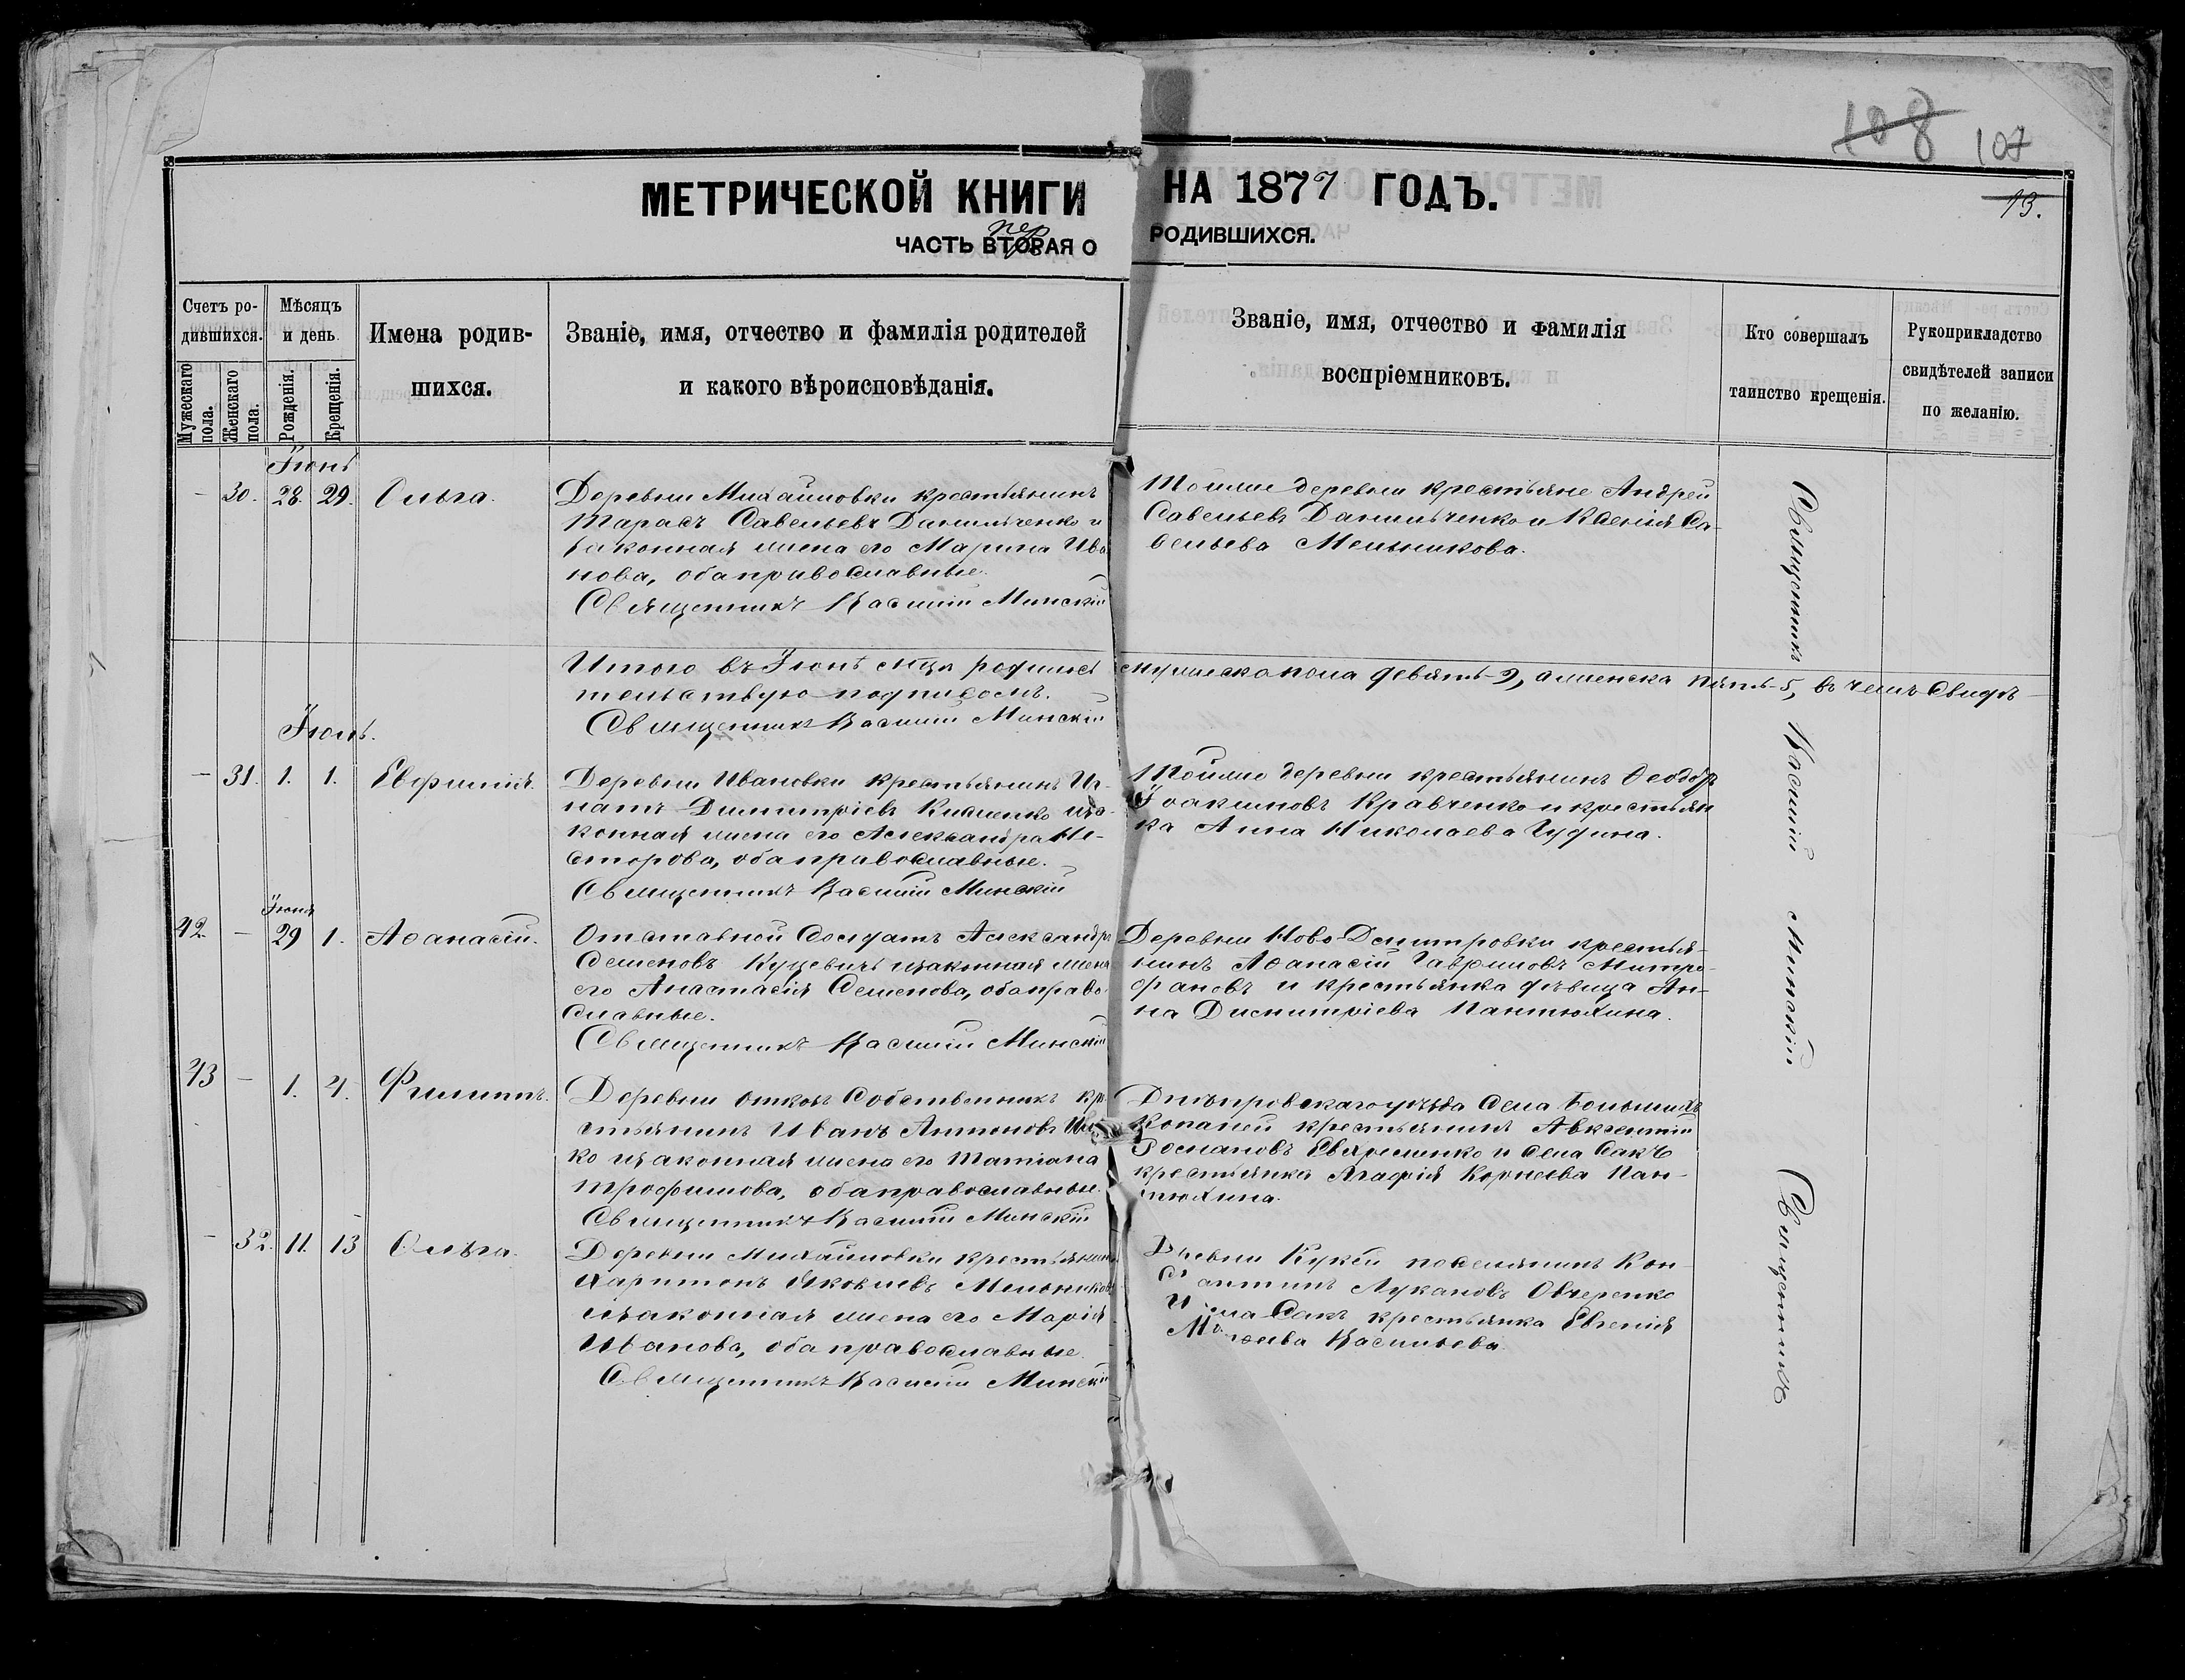 108 107
13.
МЕТРИЧЕСКОЙ КНИГИ НА 1877 ГОДЪ.
пер
ЧАСТЬ ВТОРАЯ О РОДИВШИХСЯ.
Счетъ родившихся.
Мужескаго пола.
Женскаго пола.
Мѣсяцъ и день.
Рожденія.
Крещенія.
Имена родив-
шихся.
Званіе, имя, отчество и фамилія родителей
и какого вѣроисповѣданія.
Званіе, имя, отчество и фамилія
воспріемниковъ.
Кто совершалъ
таинство крещенія.
Рукоприкладство
свидѣтелей записи
по желанію.
Іюнь
- 30. 28. 29. Ольга.
Деревни Михайловки крестьянинъ
Тарасъ Савельевъ Данильченко и
законная жена его Марина Ива
нова, оба православные.
Священникъ Василій Минскій
Тойже деревни крестьяне Андрей
Савельевъ Данильченко и Ксенія Са-
вельева Мельникова.
Итого въ Іюнѣ мцѣ родилось мужеска пола девять-9, а женска пять-5, въ чемъ свидѣ-
тельствую подписомъ.
Священникъ Василій Минскій
Іюль.
- 31. 1. 1. Евфимія.
Деревни Ивановки крестьянинъ Иг-
натъ Димитріевъ и за-
конная жена его Александра Не-
сторова, оба православные.
Священникъ Василій Минскій
Тойже деревни крестьянинъ Ѳеодоръ
Іоакимовъ Кравченко и крестьян
ка Анна Николаева Чудина.
Іюня
42. - 29 1. Аѳанасій.
Отставной солдатъ Александръ
Семеновъ Куцевичъ и законная жена
его Анастасія Семенова, оба право-
славные.
Священникъ Василій Минскій
Деревни Ново-Дмитровки крестья-
нинъ Аѳанасій Гавриловъ Митро-
фановъ и крестьянка дѣвица Ан-
на Димитріева Пантюхина.
43 - 1. 4. Филиппъ.
Деревни собственникъ кре
стьянинъ Иванъ Антоновъ
ко и законная жена его Татіана
Трофимова, оба православные.
Священникъ Василій Минскій
Днѣпровскаго уѣзда села Большихъ
Копаней крестьянинъ Авксентій
Романовъ и села Сакъ
крестьянка Агафія Корнеева Пан-
тюхина.
- 32. 11. 13 Ольга.
Деревни Михайловки крестьянинъ
Харитонъ Яковлевъ Мельниковъ
и законная жена его Марія
Иванова, оба православные.
Священникъ Василій Минскій
Деревни Кукей поселянинъ Кон-
стантинъ Лукановъ Овчеренко
и села Сакъ крестьянка Евгенія
Васильева.
Священникъ Василій Минскій
Священникъ